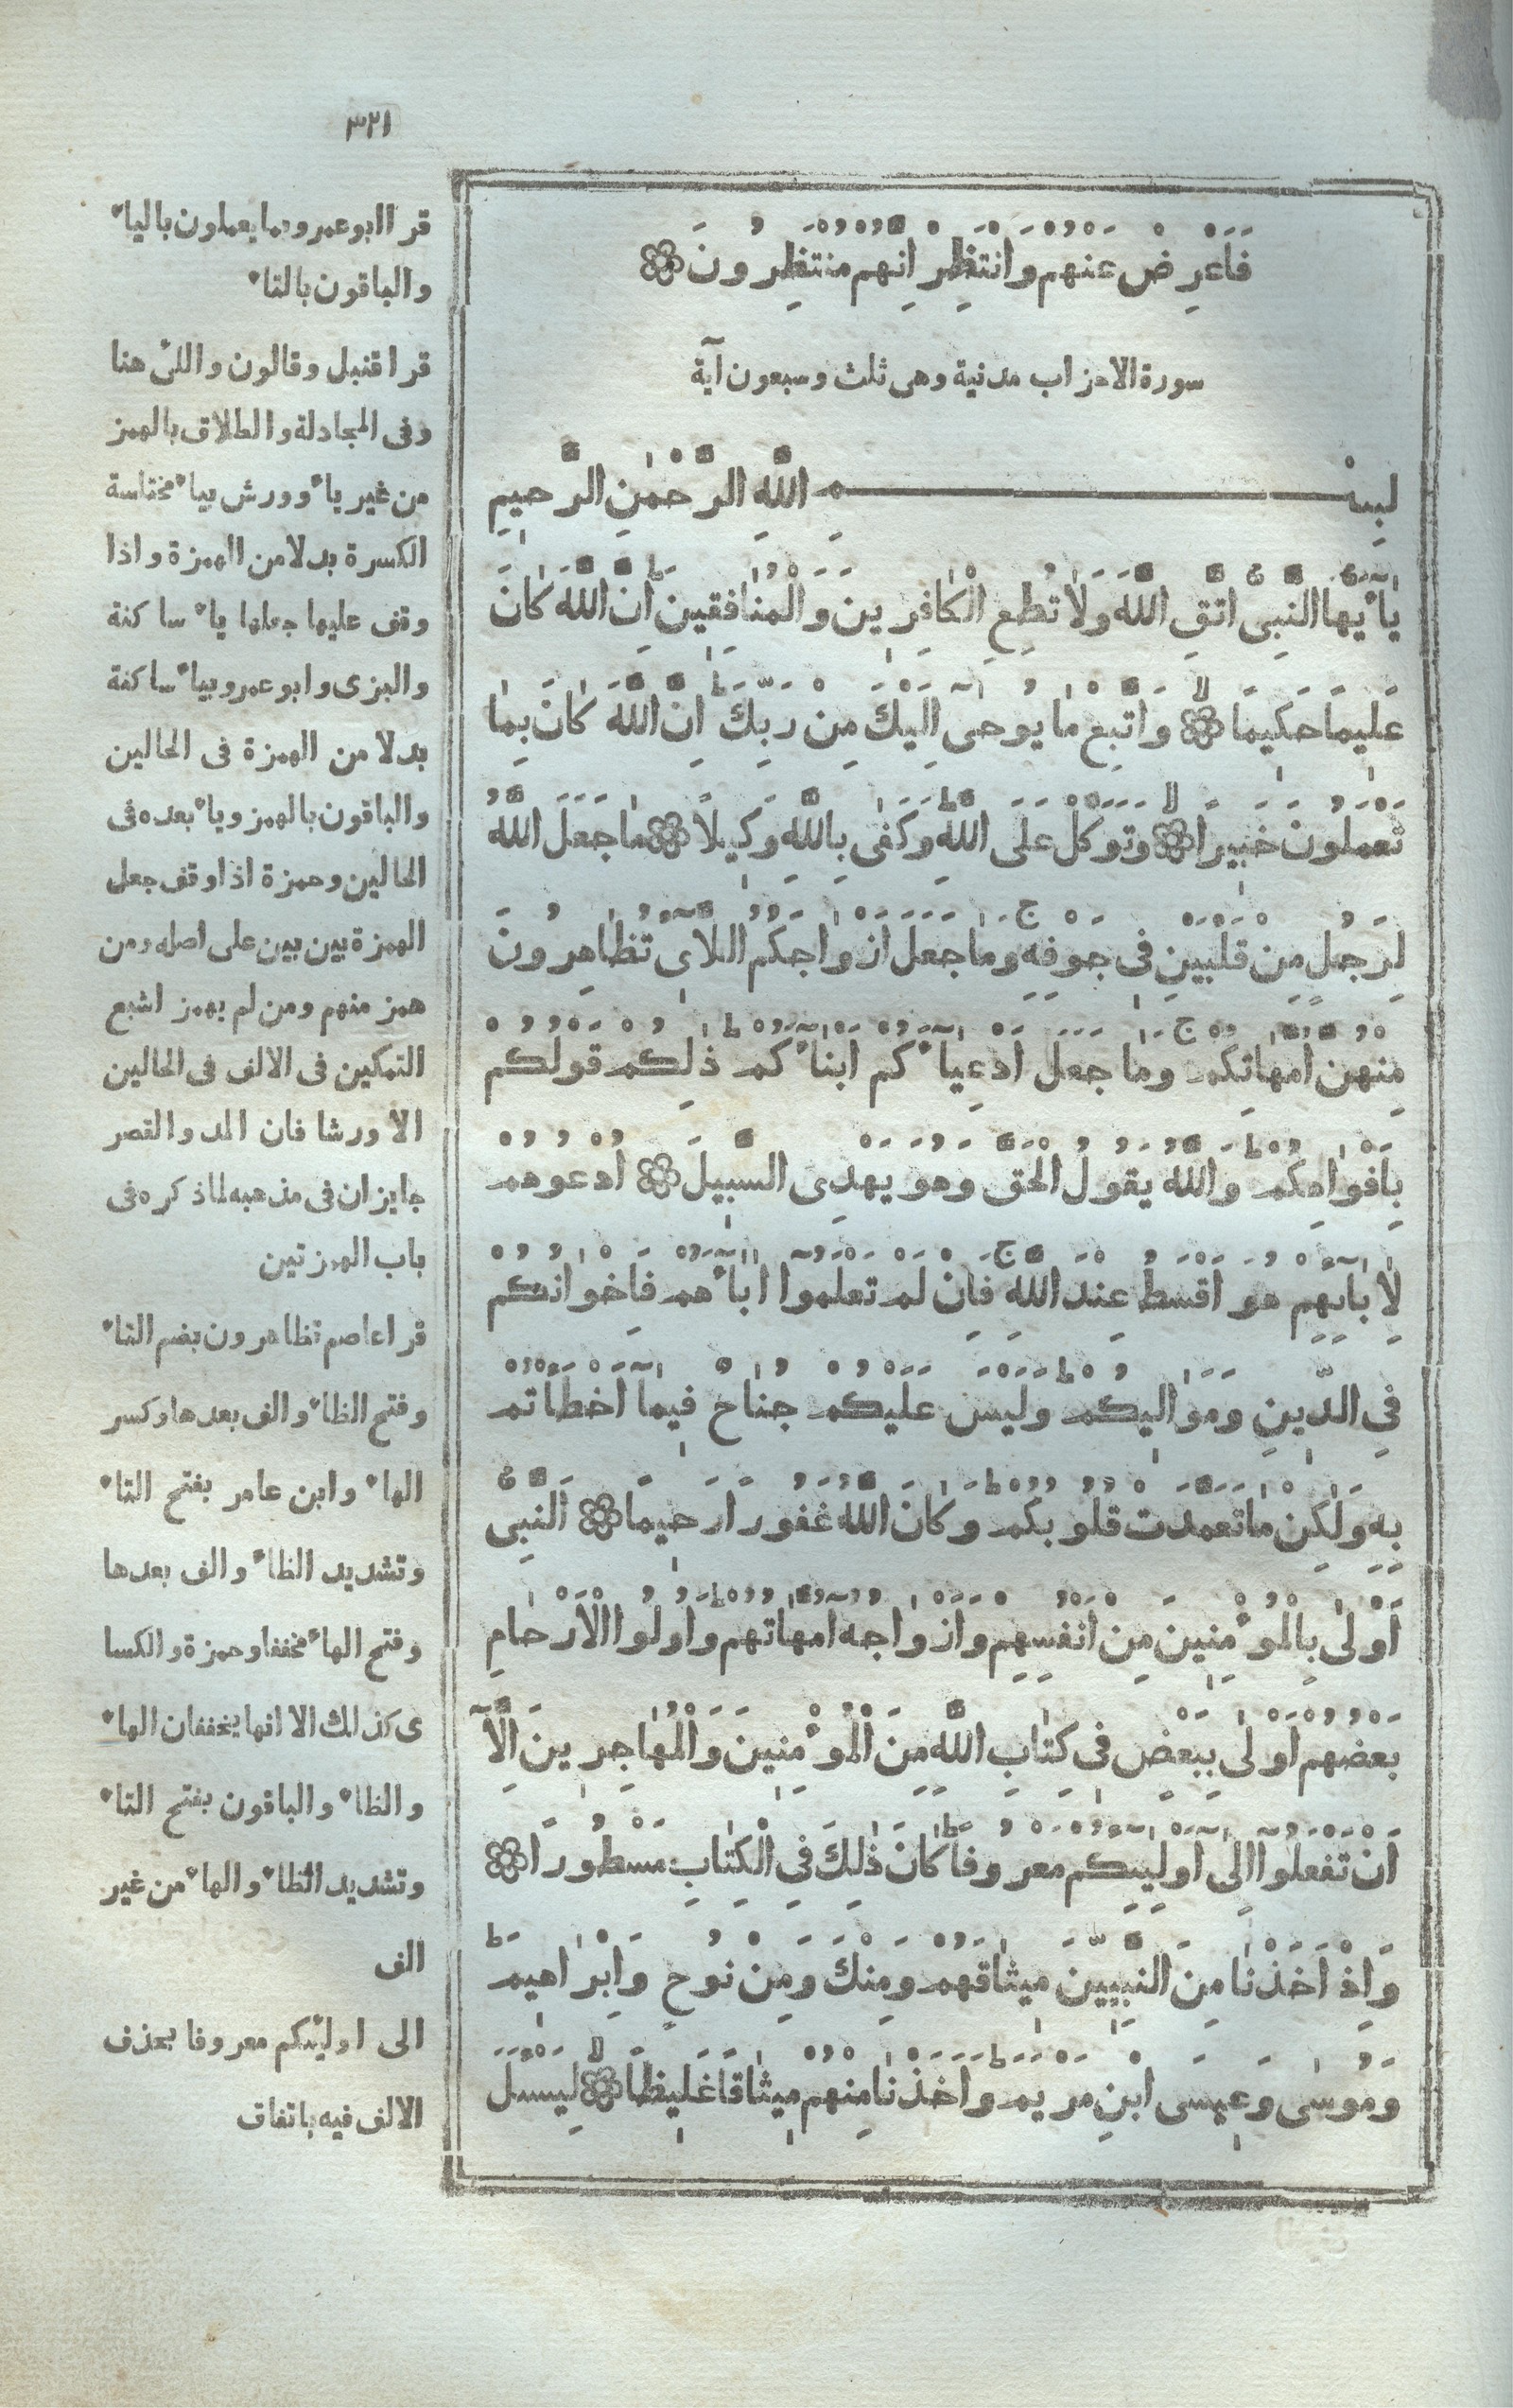 ٣٢١
فَاَعْرِضْ عَنْهُمْ وَانْتَظِرْ اِنَّهُمْ مُنْتَظِرُونَ
سورة الاحزاب مدنية وهى ثلث وسبعون آية
بِسْمِ اللَّهِ الرَّحْمٰنِ الرَّحيمِ
يٰٓاَيُّهَا النَّبِىُّ اتَّقِ اللَّهَ وَلَا تُطِعِ الْكَافِرينَ وَالْمُنَافِقينَ ط اِنَّ اللَّهَ كَانَ
عَليمًا حَكيمًا لا وَاتَّبِعْ مَا يُوحٰٓى اِلَيْكَ مِنْ رَبِّكَ ط اِنَّ اللَّهَ كَانَ بِمَا
تَعْمَلُونَ خَبيرًا لا وَتَوَكَّلْ عَلَى اللَّهِ ط وَكَفٰى بِاللَّهِ وَكيلاً مَا جَعَلَ اللَّهُ
لِرَجُلٍ مِنْ قَلْبَيْنِ فى جَوْفِهِ ج وَمَا جَعَلَ اَزْوَاجَكُمُ اللَّآئى تُظَاهِرُونَ
مِنْهُنَّ اُمَّهَاتِكُمْ ج وَمَا جَعَلَ اَدْعِيَآءَكُمْ اَبْنَآءَكُمْ ط ذٰلِكُمْ قَوْلُكُمْ
بِاَفْوَاهِكُمْ ط وَاللَّهُ يَقُولُ الْحَقَّ وَهُوَ يَهْدِى السَّبيلَ اُدْعُوهُمْ
لِاٰبَآئِهِمْ هُوَ اَقْسَطُ عِنْدَ اللَّهِ ج فَاِنْ لَمْ تَعْلَمُوٓا اٰبَآءَهُمْ فَاِخْوَانُكُمْ
فِى الدّينِ وَمَوَاليكُمْ ط وَلَيْسَ عَلَيْكُمْ جُنَاحٌ فيمَآ اَخْطَأْتُمْ
بِهِ وَلٰكِنْ مَا تَعَمَّدَتْ قُلُوبُكُمْ ط وَكَانَ اللَّهُ غَفُورًا رَحيمًا اَلنَّبِىُّ
اَوْلٰى بِالْمُؤْمِنينَ مِنْ اَنْفُسِهِمْ وَاَزْوَاجُهُ اُمَّهَاتُهُمْ ط وَاُولُوا الْاَرْحَامِ
بَعْضُهُمْ اَوْلٰى بِبَعْضٍ فى كِتَابِ اللَّهِ مِنَ الْمُؤْمِنينَ وَالْمُهَاجِرينَ اِلَّآ
اَنْ تَفْعَلُوٓا اِلٰٓى اَوْلِيٰٓئِكُمْ مَعْرُوفًا ط كَانَ ذٰلِكَ فِى الْكِتَابِ مَسْطُورًا
وَاِذْ اَخَذْنَا مِنَ النَّبِيّينَ ميثَاقَهُمْ وَمِنْكَ وَمِنْ نُوحٍ وَاِبْرَاهيمَ ط
وَمُوسٰى وَعيسَى ابْنِ مَرْيَمَ ط وَاَخَذْنَا مِنْهُمْ ميثَاقًا غَليظًا لا لِيَسْئَلَ
قرا ابو عمرو بما يعملون بالياء
والباقون بالتاء
قرا قنبل وقالون واللئ هنا
وفى المجادلة والطلاق بالهمز
من غير ياء وورش بياء مختلسة
الكسرة بدلا من الهمزة واذا
وقف عليها جعلها ياء ساكنة
والبزى وابو عمرو بياء ساكنة
بدلا من الهمزة فى الحالين
والباقون بالهمز وياء بعده فى
الحالين وحمزة اذا وقف جعل
الهمزة بين بين على اصله ومن
همز منهم ومن لم يهمز اشبع
التمكين فى الالف فى الحالين
الا ورشا فان المد والقصر
جايزان فى مذهبه لما ذكره فى
باب الهمزتين
قرا عاصم تظاهرون بضم التاء
وفتح الظاء والف بعدها وكسر
الهاء وابن عامر بفتح التاء
وتشديد الظاء والف بعدها
وفتح الهاء مخففا وحمزة والكسا
ى كذلك الا انها يخففان الهاء
والظاء والباقون بفتح التاء
وتشديد الظاء والهاء من غير
الف
الى اوليئكم معروفا بحذف
الالف فيه باتفاق